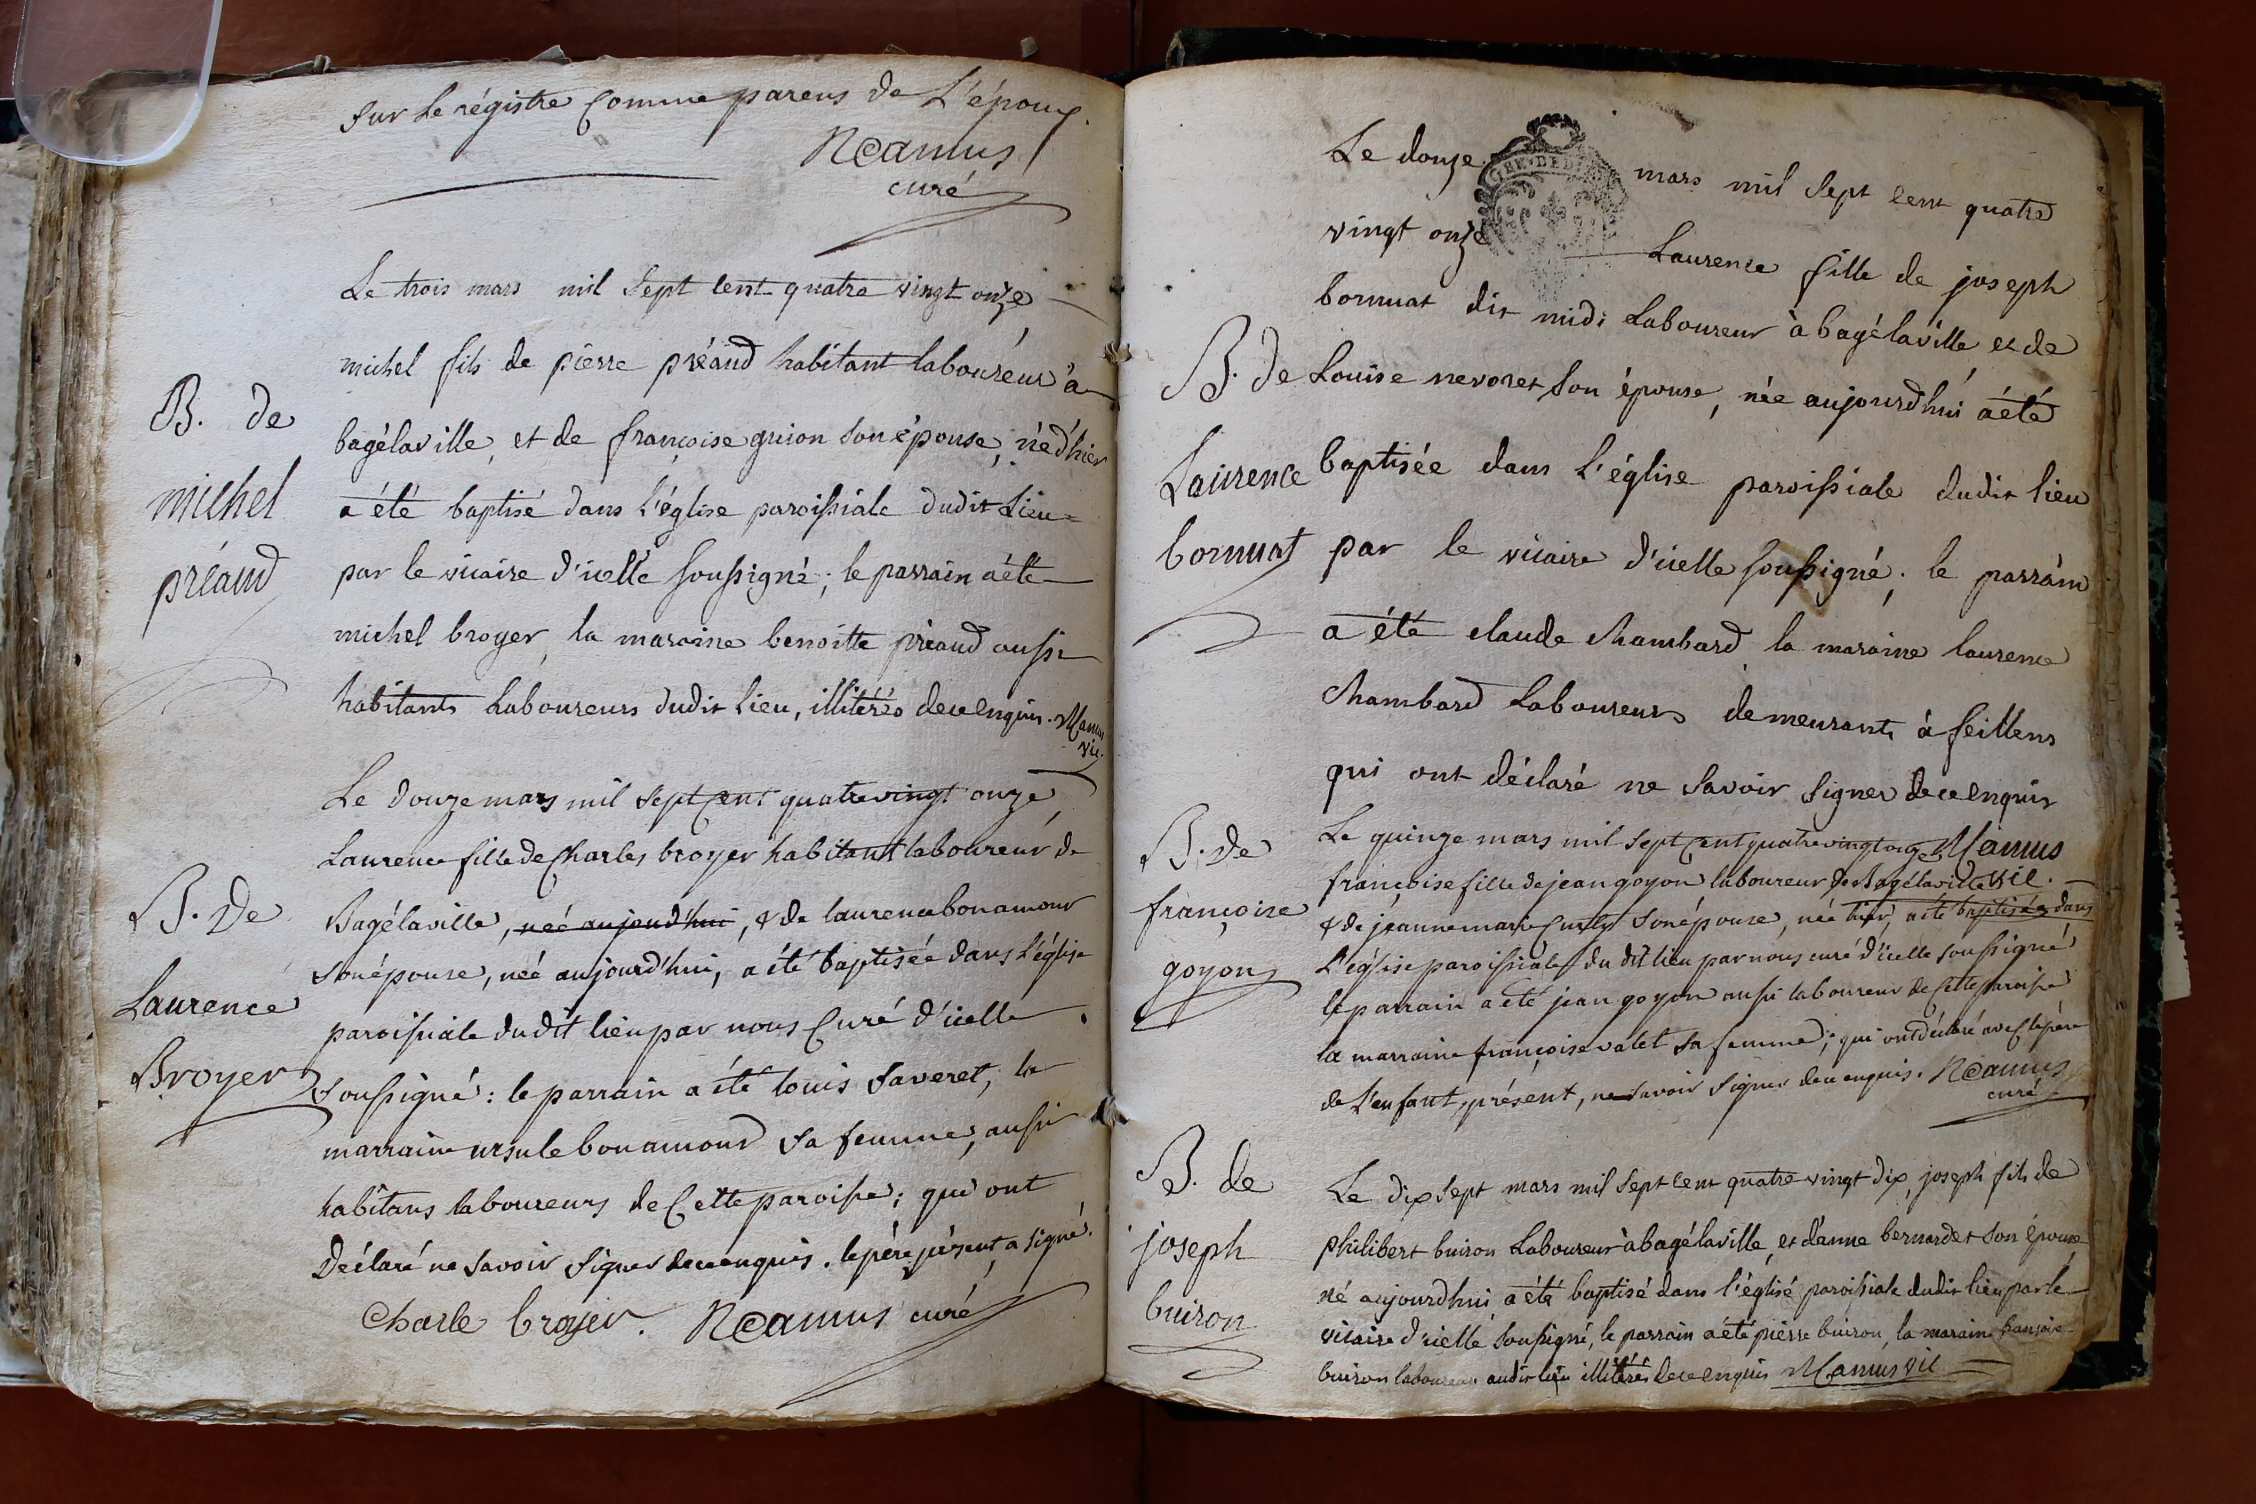 sur le régistre Comme parens de L'époux.
NCamus
curé
Le trois mars mil sept cent quatre vingt onze
michel fils de pierre préaud habitant laboureur à
B. de
bagélaville, et de françoise guion son épouse, né d'hier
michel
a été baptisé dans l'église paroissiale dudit Lieu
préaud
par le vicaire d'icelle soussigné; le parrain a été
michel broyer, la maraine benoitte préaud aussi
habitants Laboureurs dudit lieu, illitérés de ce enquis. MCamus
vic.
Le douze mars mil sept Cent quatre vingt onze,
Laurence fille de Charles broyer habitant laboureur de
B. de
Bagélaville, née aujourd'hui, & de laurence bonamour
son épouse, née aujourd'hui, a été baptisée dans l'église
Laurence
paroissiale du dit lieu par nous Curé d'icelle
Broyer
soussigné: le parrain a été louis faveret, la
marraine ursule bonamour sa femme, aussi
habitans laboureurs de Cette paroisse; qui ont
déclaré ne savoir signer de ce enquis. le père présent a signé.
Charle broyer. NCamus curé
Le douze mars mil sept cent quatre
vingt onze Laurence fille de joseph
bornuat dit midi Laboureur à bagélaville et de
B. de
Louise nevoret son épouse, née aujourdhui a été
Laurence
baptisée dans l'église paroissiale dudit lieu
bornuat
par le vicaire d'icelle soussigné; le parrain
a été claude Chambard la maraine laurence
Chambard Laboureurs demeurants à feillens
qui ont déclaré ne savoir signer de ce enquis
MCamus
vic.
B. de
Le quinze mars mil sept Cent quatre vingt onze
françoise
françoise fille de jean goyon laboureur de Bagélaville
& de jeanne marie son épouse, née hier, a été baptisée dans
goyon
L'église paroissiale du dit lieu par nous curé d'icelle soussigné
le parrain a été jean goyon aussi laboureur de Cette paroisse
la marraine françoise valet sa femme; qui ont déclaré avec le père
de L'enfant, présent, ne savoir signer de ce enquis. NCamus
curé
B. de
Le dix sept mars mil sept cent quatre vingt dix, joseph fils de
joseph
philibert buiron Laboureur à bagélaville, et d'anne bernardet son épouse
né aujourdhui a été baptisé dans l'église paroissiale dudit lieu par le
buiron
vicaire d'icelle soussigné, le parrain a été pierre buiron, la maraine françoise
buiron laboureurs audit lieu illitérés de ce enquis MCamus vic